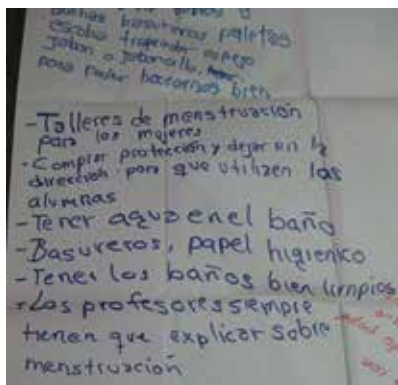 buenas basureros paletas
escoba trapeador espejo
jabon o jaboncillo,
para poder hacernos bien
-Talleres de menstruación
para las mujeres
-Comprar protección y dejar en la
dirección para que utilizen las
alumnas
-Tener agua en el baño
-Basureros, papel higienico
-Tener los baños bien limpios
-Los profesores siempre
tienen que explicar sobre
menstruación